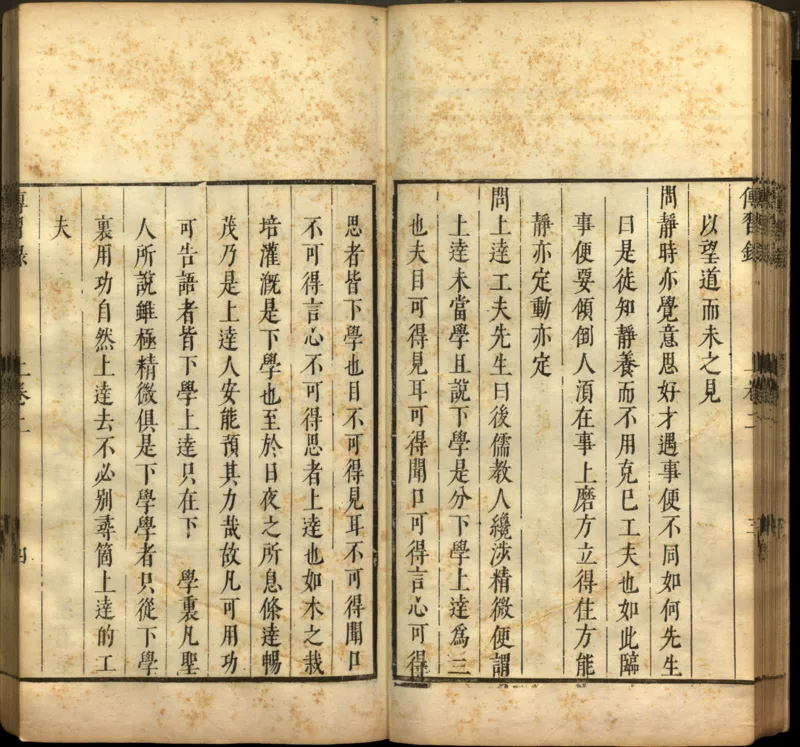 傳習錄 上卷二 三
以望道而未之見
問靜時亦覺意思好才遇事便不同如何先生
曰是徒知靜養而不用克己工夫也如此臨
事便要傾倒人須在事上磨方立得住方能
靜亦定動亦定
問上達工夫先生曰後儒教人纔涉精微便謂
上達未當學且說下學是分下學上達為三
也夫目可得見耳可得聞口可得言心可得
思者皆下學也目不可得見耳不可得聞口
不可得言心不可得思者上達也如木之栽
培灌溉是下學也至於日夜之所息條達暢
茂乃是上達人安能預其力哉故凡可用功
可告語者皆下學上達只在下 學裏凡聖
人所說雖極精微俱是下學學者只從下學
裏用功自然上達去不必別尋箇上達的工
夫
傳習錄 上卷二 四